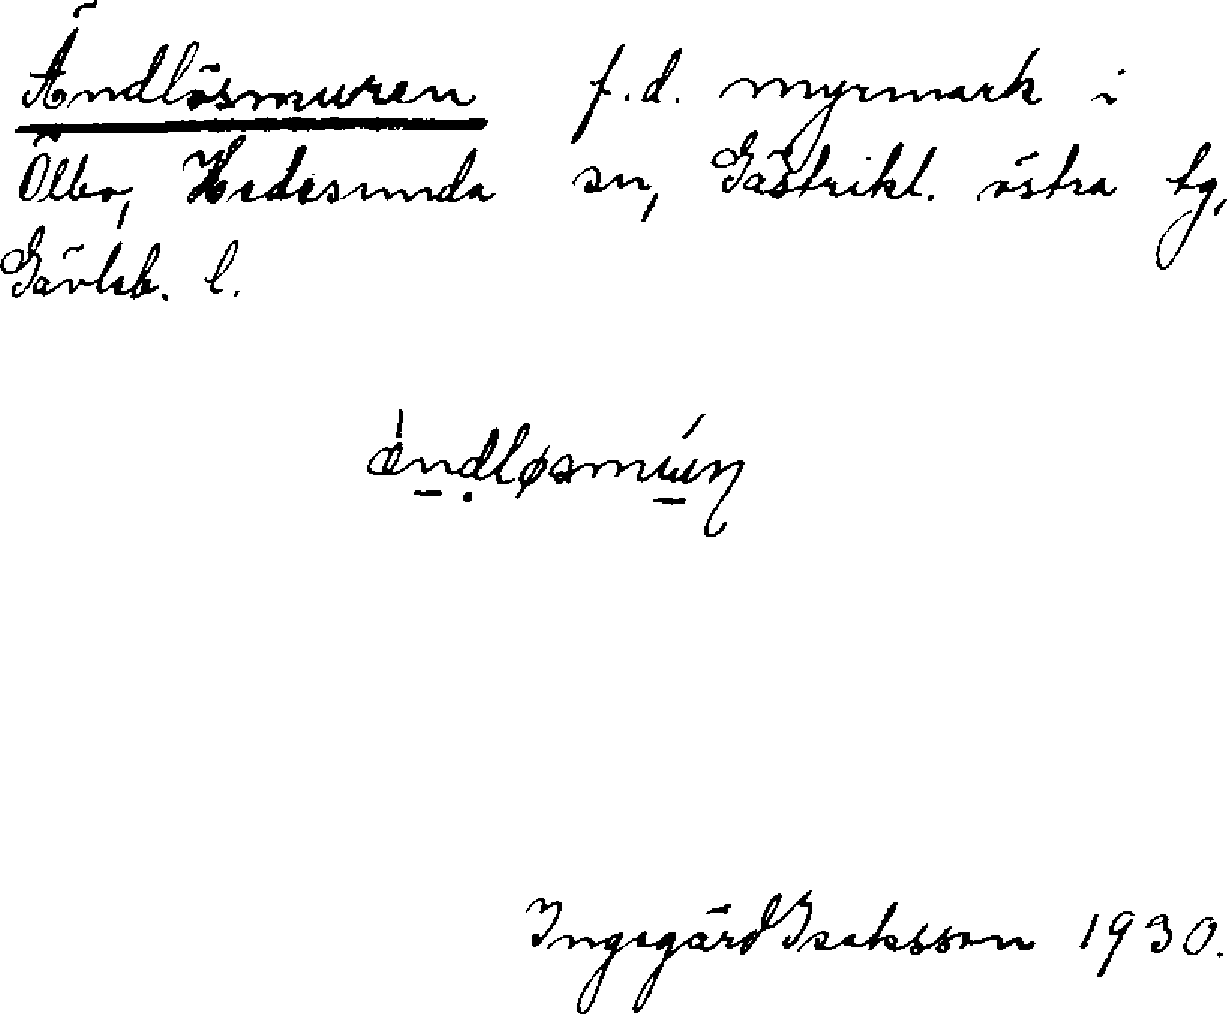 Ändlösmuren f.d. myrmark i
Ölbo, Hedesunda sn, Gästrikl. östra tg,
Gävleb. l.
Ingegärd Isaksson 1930.